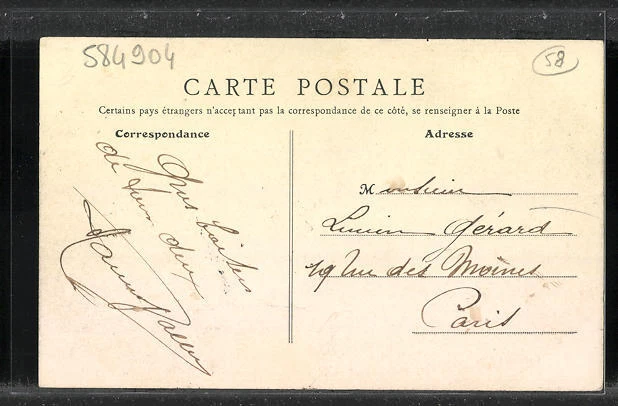 584904
58
CARTE POSTALE
Certains pays étrangers n'acceptant pas la correspondance de ce côté, se renseigner à la Poste
Correspondance
Adresse
de tous deux
Monsieur
Lucien Gérard
19 rue des Moines
Paris